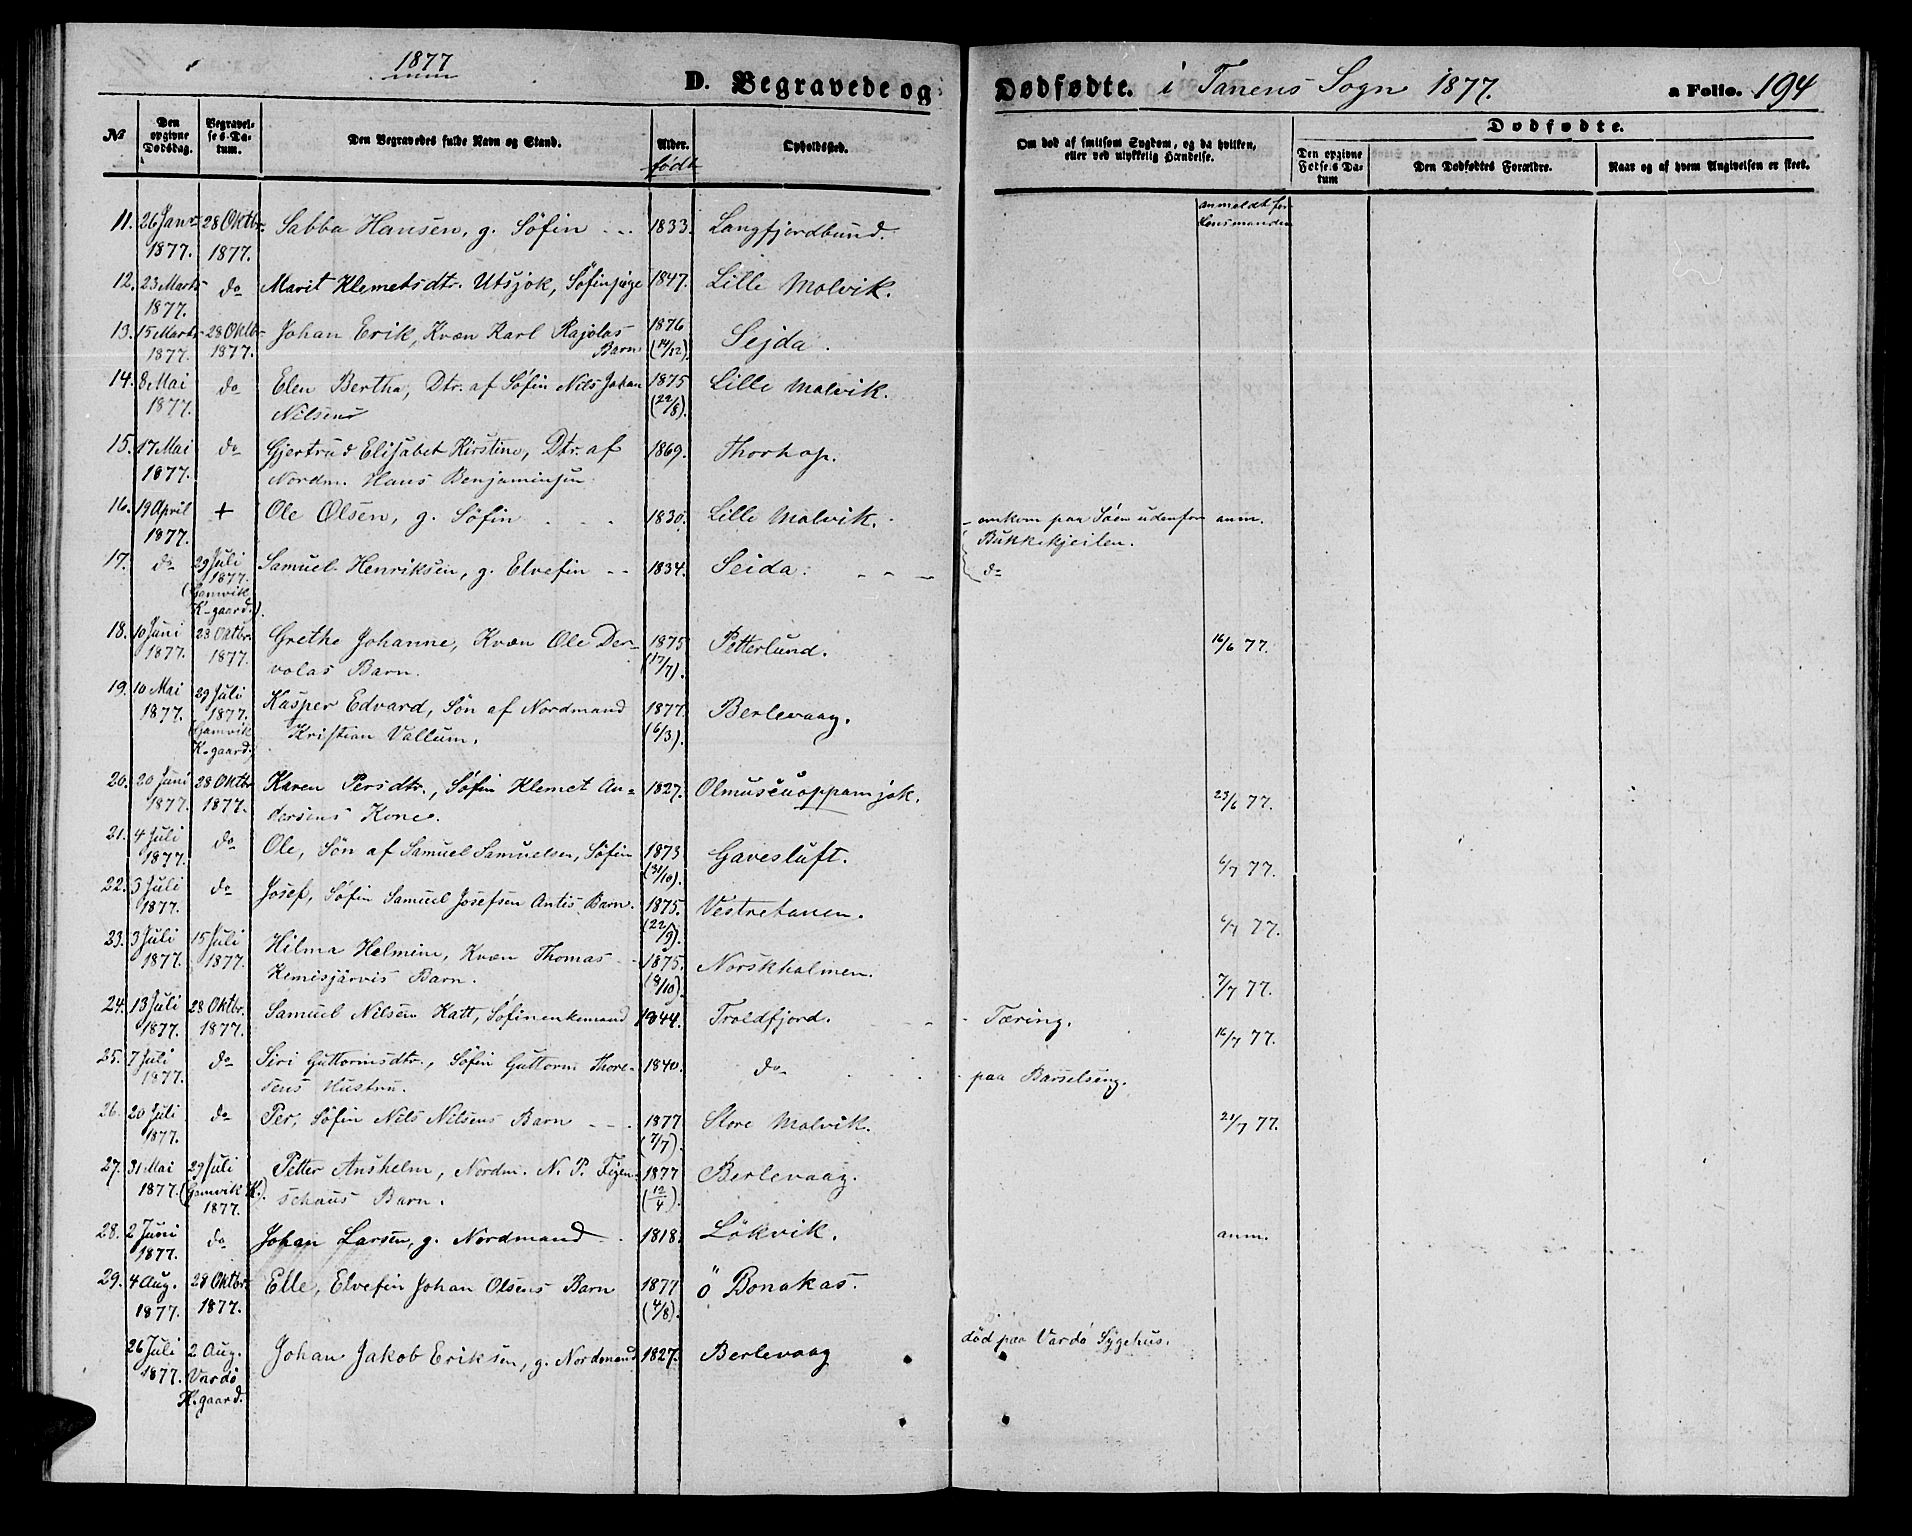 1877
D. Begravede og Dødfødte. i Tanens Sogn 1877. a Folio. 194
№ Den opgivne Dødsdag. Begravelses-Datum. Den Begravedes fulde Navn og Stand. Alder. født Opholdssted. Om død af smitsom Sygdom, og da hvilken, eller ved ulykkelig Hændelse. Dødfødte.
Den opgivne Fødsels-Datum Den Dødfødtes Forældre. Naar og af hvem Angivelsen er skeet.
anmeldt for Lensmanden
11. 26 Janr 1877. 28 Oktbr. 1877. Sabba Hansen, g. Söfin 1833. Langfjordbund.
12. 23 Marts 1877. do Marit Klemetsdtr. Utsjok, Söfinpige 1847. Lille Molvik.
13. 15 Marts 1877. 28 Oktbr. 1877. Johan Erik, Kvæn Karl Rajolas
Barn 1876 (14/12). Sejda.
14. 8 Mai 1877. do Elen Bertha, Dtr. af Söfin Nils Johan
Nilsens 1875 (22/8). Lille Molvik.
15. 17 Mai 1877. do Gjertrud Elisabet Kirstine, Dtr. af
Nordm. Hans Benjaminsen 1869. Thorhop.
16. 19 April 1877. + Ole Olsen, g. Söfin 1830. Lille Molvik. omkom paa Söen udenfor anm.
Bukkekjeilen.
17. do 29 Juli 1877. (Gamvik K-gaard). Samuel Henriksen, g. Elvefin 1834. Seida. do
18. 10 Juni 1877. 28 Oktbr. 1877. Grethe Johanne, Kvæn Ole Der-
volas Barn. 1875 (17/7). Petterlund. 16/6 77.
19. 10 Mai 1877. 29 Juli 1877. (Gamvik K.gaard.) Kasper Edvard, Sön af Nordmand
Kristian Vallum. 1877. (6/3). Berlevaag.
20. 20 Juni 1877. 28 Oktbr 1877. Karen Persdtr., Söfin Klemet An-
dersens Kone. 1827. Olmuscuoppamjok. 23/6 77.
21. 4 Juli 1877. do Ole, Sön af Samuel Samuelsen, Söfin 1873 (31/10). Gavesluft. 6/7 77.
22. 5 Juli 1877. do Josef, Söfin Samuel Josefsen Antis Barn. 1875. (22/9). Vestretanen. 6/7 77.
23. 3 Juli 1877. 15 Juli 1877. Hilma Helmine, Kvæn Thomas
Kemisjärvis Barn. 1875. (8/10). Norskholmen. 7/7 77.
24. 13 Juli 1877. 28 Oktbr. 1877. Samuel Nilsen Katt, Söfinenkemand 1844. Troldfjord. Tæring. 16/7 77.
25. 7 Juli 1877. do Siri Guttormsdtr., Söfin Guttorm Thore-
sens Hustru. 1840. do paa Barselseng.
26. 20 Juli 1877. do Per, Söfin Nils Nilsens Barn 1877 (7/7). Store Molvik. 21/7 77.
27. 31 Mai 1877. 29 Juli (Gamvik K.) 1877. Petter Anshelm, Nordm. N. P. Figen-
schaus Barn. 1877 (12/4). Berlevaag.
28. 2 Juni 1877. do Johan Larsen, g. Nordmand 1818. Lökvik. anm.
29. 4 Aug. 1877. 28 Oktbr. 1877. Elle, Elvefin Johan Olsens Barn 1877 (4/8). ö Bonakas.
26 Juli 1877. 2 Aug. Vardö K.gaard. Johan Jakob Eriksen, g. Nordmand 1827. Berlevaag död paa Vardö Sygehus.